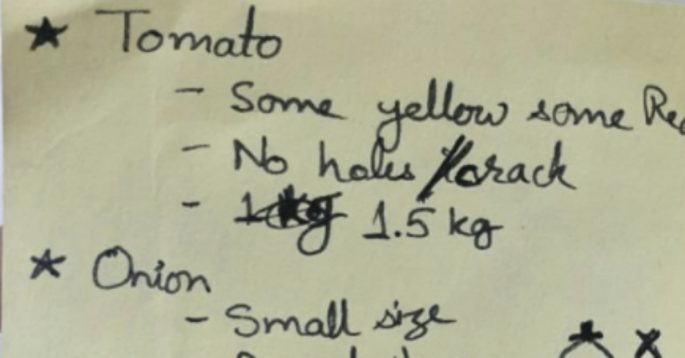 ★ Tomato
- Some yellow some Red
- No holes /crack
- 1.5 kg
★ Onion
- Small size